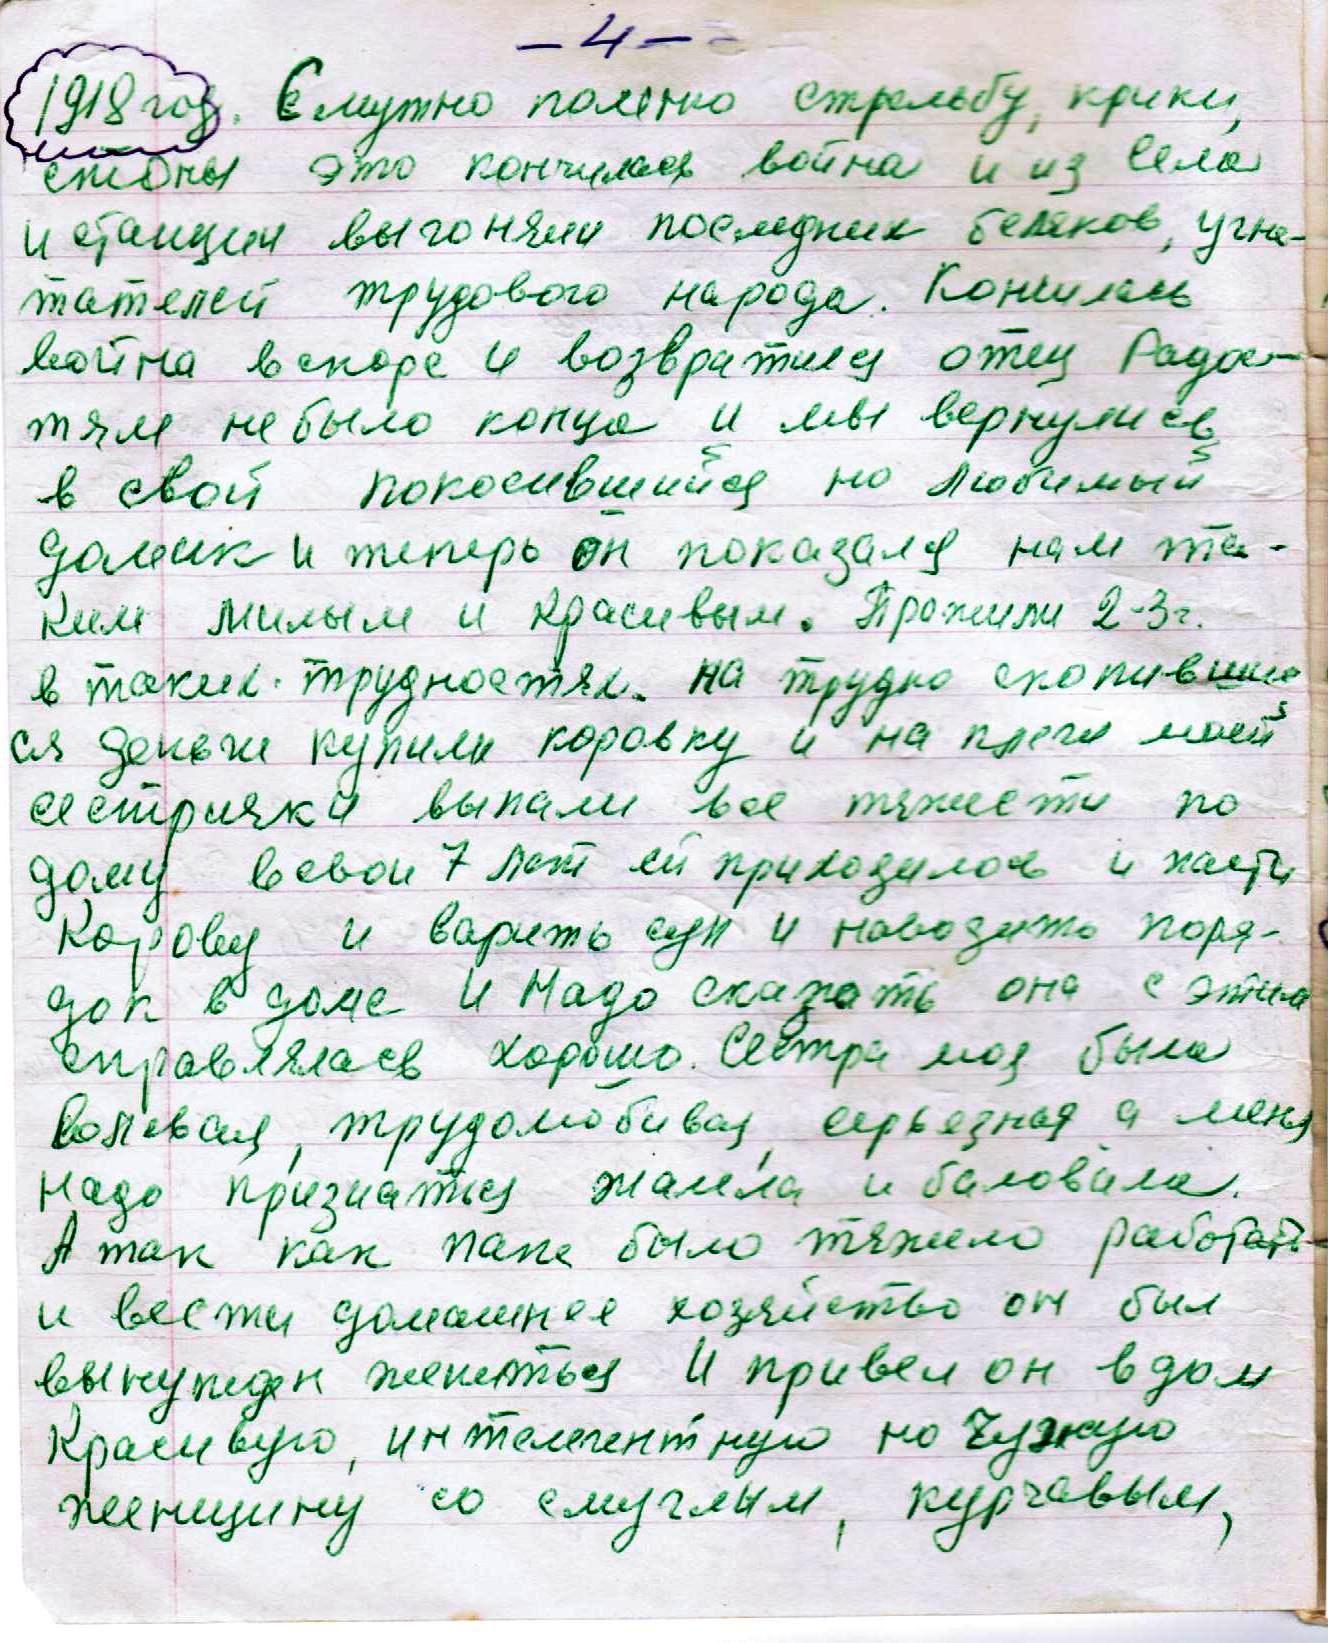 - 4 -
1918 год. Смутно помню стрельбу, крики,
стоны это кончилась война и из села
и станции выгоняли последних беляков, угне-
тателей трудового народа. Кончилась
война вскоре и возвратился отец Радос-
тям не было конца и мы вернулись
в свой покосившийся но любимый
домик и теперь он показался нам та-
ким милым и красивым. Прожили 2-3 г.
в таких трудностях. на трудно скопившие
ся деньги купили коровку и на плечи моей
сестрички выпали все тяжести по
дому в свои 7 лет ей приходилось и пасти
Корову и варить суп и наводить поря-
док в доме И Надо сказать она с этим
справлялась хорошо. Сестра моя была
волевая, трудолюбивая, серьезная а меня
надо признаться жалела и баловала.
А так как папе было тяжело работать
и вести домашнее хозяйство он был
вынужден жениться И привел он в дом
Красивую, интелегентную но Чужую
женщину со смуглым, курчавым,